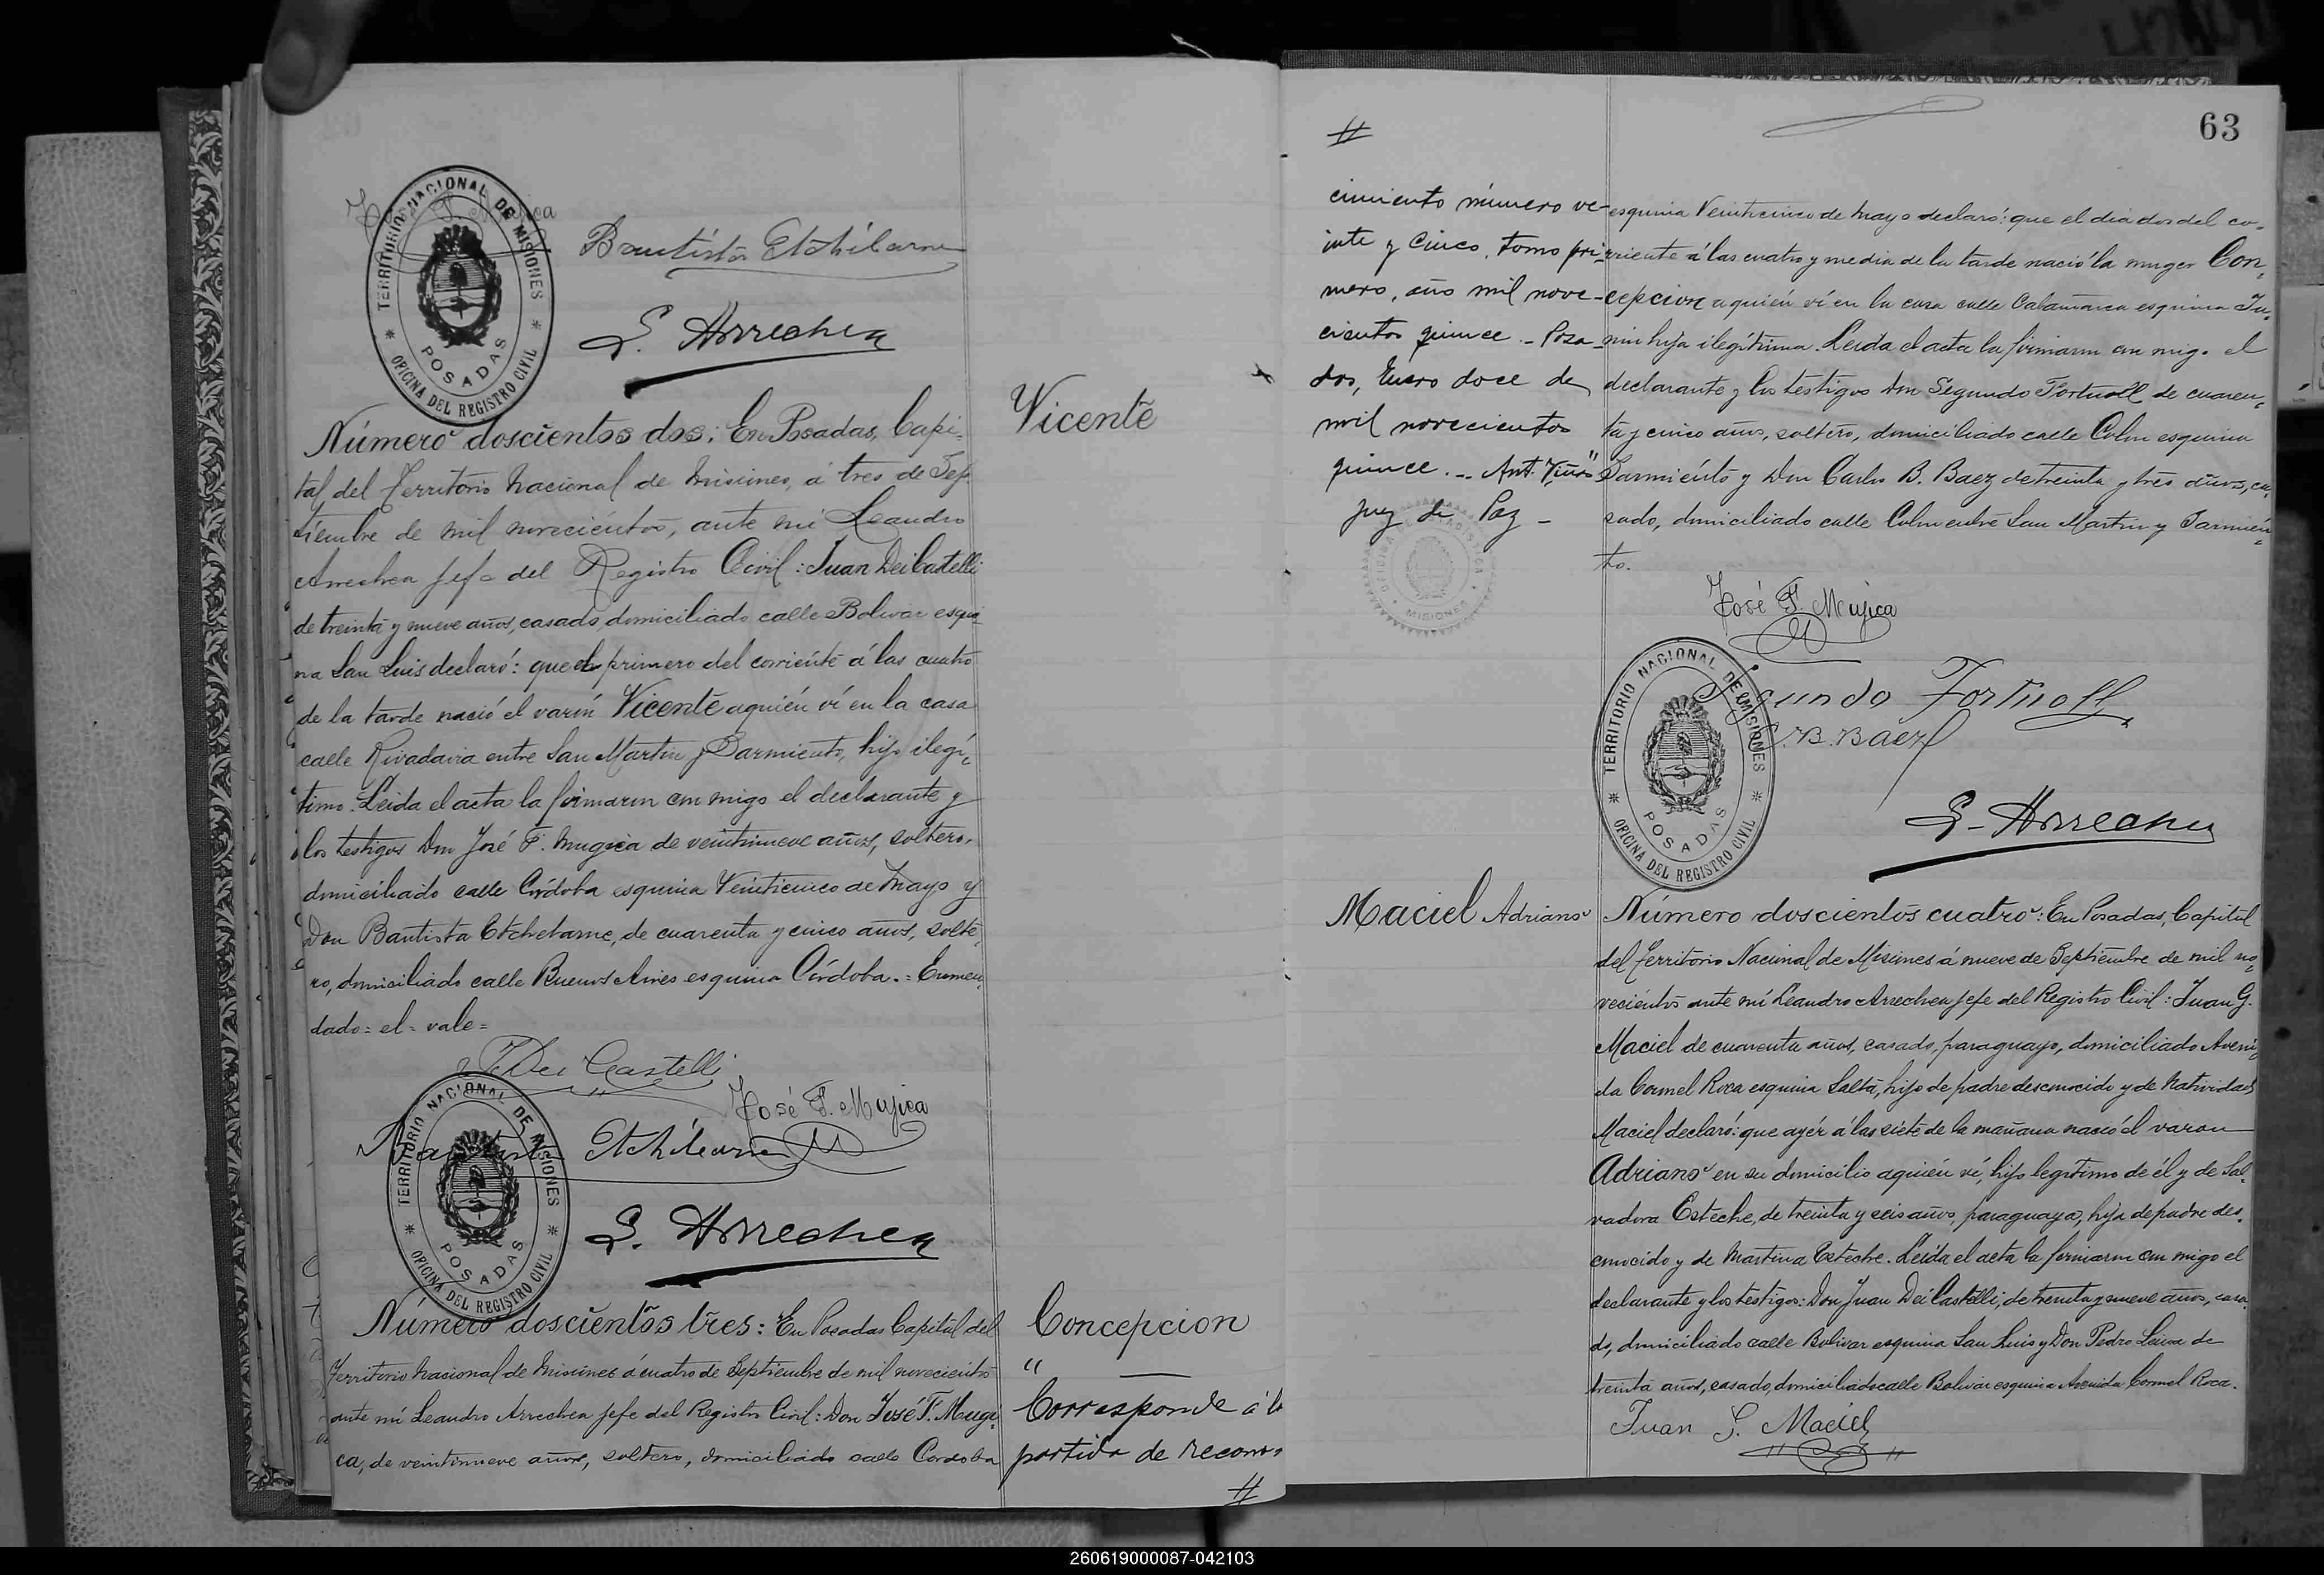 José F. Mujica
TERRITORIO NACIONAL DE MISIONES
POSADAS
OFICINA DEL REGISTRO CIVIL
Bautista Etchilarne
L. Arrechea
Vicente
Número doscientos dos: En Posadas, Capi-
tal del Territorio Nacional de Misiones, á tres de Sep-
tiembre de mil novecientos, ante mi Leandro
Arrechea Jefe del Registro Civil: Juan Dei Castelli
de treinta y nueve años, casado, domiciliado calle Bolivar esqui-
na San Luis declaró: que el primero del corriente á las cuatro
de la tarde nació el varón Vicente aquién ví en la casa
calle Rivadavia entre San Martin y Sarmiento, hijo ilegí-
timo. Leida el acta la firmaron con migo el declarante y
los testigos Don José F. Mugica de veintinueve años, soltero,
domiciliado calle Córdoba esquina Veinticinco de Mayo y
Don Bautista Etchelarne, de cuarenta y cinco años, solte-
ro, domiciliado calle Buenos Aires esquina Córdoba.= Enmen-
dado= el= vale=
J. Dei Castelli
José F. Mujica
Bautista Etchilearne
TERRITORIO NACIONAL DE MISIONES
POSADAS
OFICINA DEL REGISTRO CIVIL
L. Arrechea
Concepcion
"
Corresponde á la
partida de recono-
#
Número doscientos tres: En Posadas Capital del
Territorio Nacional de Misiones á cuatro de Septiembre de mil novecientos
ante mí Leandro Arrechea Jefe del Registro Civil: Don José F. Mugi-
ca, de veintinueve años, soltero, domiciliado calle Cordoba
63
#
cimiento número ve-
inte y cinco, tomo pri-
mero, año mil nove-
cientos quince - Posa-
das, Enero doce de
mil novecientos
quince. - Ant. Viñas
Juez de Paz -
MISIONES
esquina Veinticinco de Mayo declaró: que el dia dos del co-
rriente á las cuatro y media de la tarde nació la muger Con-
cepcion aquién ví en la casa calle Catamarca esquina Ju-
nin hija ilegítima. Leida el acta la firmaron con migo el
declarante y los testigos Don Segundo Fortuoll de cuaren-
ta y cinco años, soltero, domiciliado calle Colon esquina
Sarmiento y Don Carlos B. Baez de treinta y tres años, ca-
sado, domiciliado calle Colon entre San Martin y Sarmien-
to.
José F. Mujica
Segundo Fortuoll
C. B. Baez
TERRITORIO NACIONAL DE MISIONES
POSADAS
OFICINA DEL REGISTRO CIVIL
L. Arrechea
Maciel Adriano
Número doscientos cuatro: En Posadas, Capital
del Territorio Nacional de Misiones á nueve de Septiembre de mil no-
vecientos ante mí Leandro Arrechea Jefe del Registro Civil: Juan G.
Maciel de cuarenta años, casado, paraguayo, domiciliado Aveni-
da Coronel Roca esquina Salta, hijo de padre desconocido y de Natividad
Maciel declaró: que ayér á las siete de la mañana nació el varon
Adriano en su domicilio aquién ví, hijo legítimo de él y de Sal-
vadora Esteche, de treinta y seis años, paraguaya, hija de padre des-
conocido y de Martina Esteche. Leida el acta la firmaron con migo el
declarante y los testigos: Don Juan Dei Castelli, de treinta y nueve años, casa-
do, domiciliado calle Bolivar esquina San Luis y Don Pedro Leiva de
treinta años, casado, domiciliado calle Bolivar esquina Avenida Coronel Roca.
Juan G. Maciel
260619000087-042103